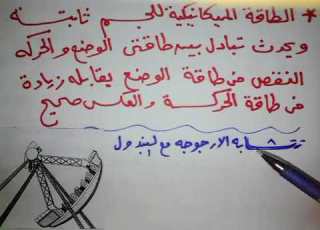 * الطاقة الميكانيكية للجسم ثابتة
ويحدث تبادل بين طاقتى الوضع والحركه
النقص من طاقة الوضع يقابله زيادة
من طاقة الحركة والعكس صحيح
تتشابه الارجوحه مع البندول